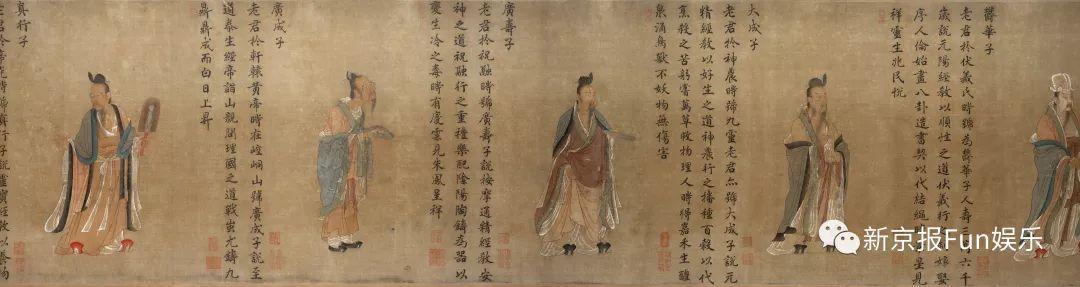 鬱華子
老君於伏羲氏時號為鬱華子人壽三 六千
歲說元陽經教以順性之道伏羲行 嫁娶
序人倫始畫八卦造書契以代結繩 星見
祥靈生兆民悅
大成子
老君於神農時號九靈老君亦號大成子說元
精經教以好生之道神農行之播種百穀以代
烹殺之苦躬嘗萬草牧物理人時得嘉禾生醴
泉涌鳥獸不妖物無傷害
廣壽子
老君於祝融時號廣壽子說按摩通精經教安
神之道祝融行之重種樂配陰陽陶鑄為器以
變生冷之毒時有慶雲見朱鳳呈祥
廣成子
老君於軒轅黃帝時在崆峒山號廣成子說至
道泰生經帝詣山親聞理國之道戰蚩尤鑄九
鼎鼎成而白日上昇
真行子
新京报Fun娱乐